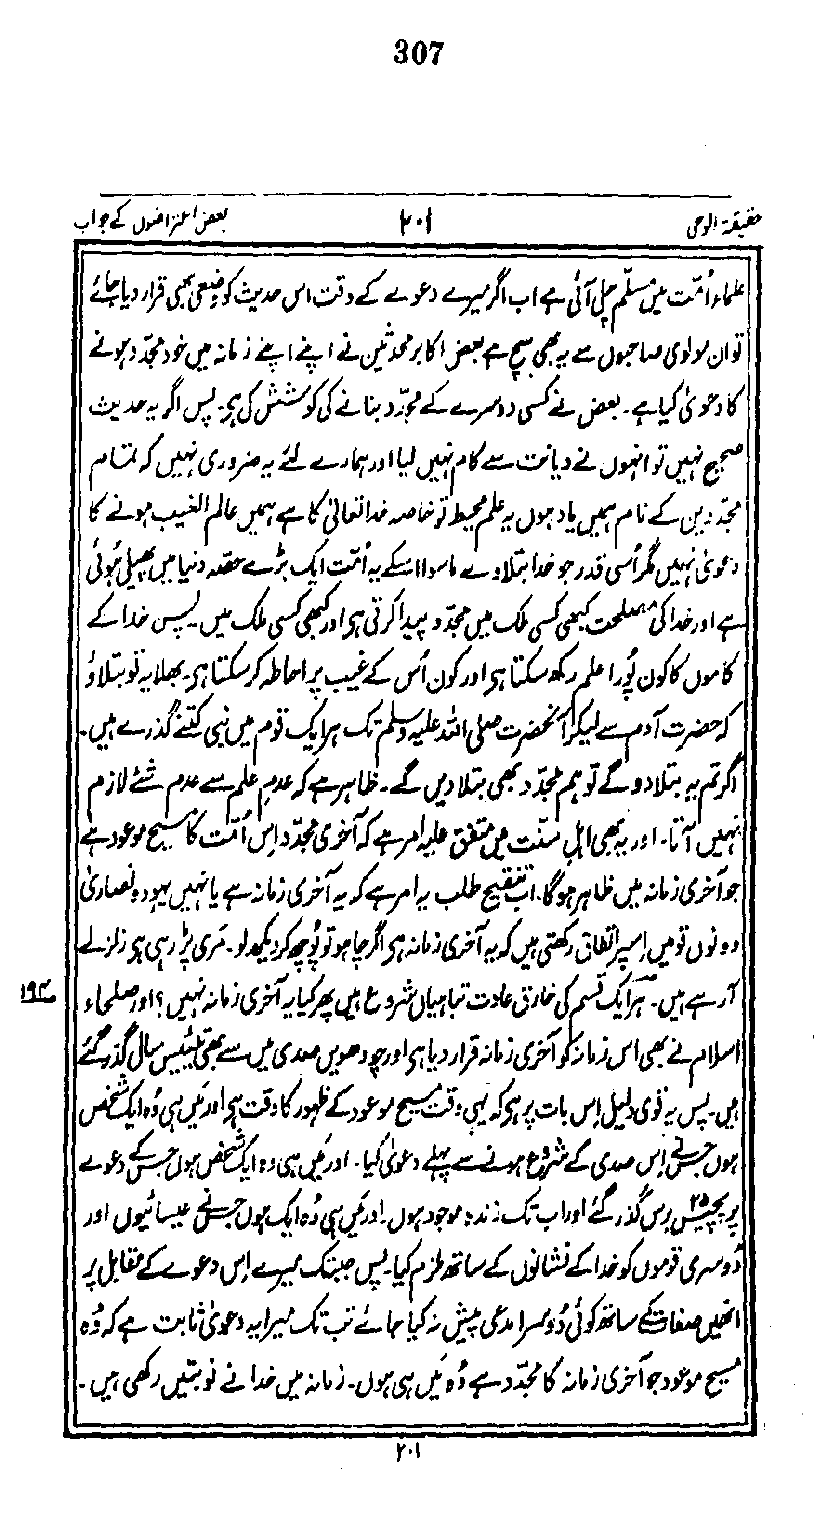 307
حقیقۃ الوحی ۲۰۱ بعض اعتراضوں کے جواب
علماء اُمّت میں مسلّم چلی آئی ہے اب اگر میرے دعوے کے وقت اس حدیث کو وضعی بھی قرار دیا جائے
تو ان مولوی صاحبوں سے یہ بھی سچ ہے بعض اکابر محدثین نے اپنے اپنے زمانہ میں خود مجدّد ہونے
کا دعویٰ کیا ہے۔ بعض نے کسی دوسرے کے مجدّد بنانے کی کوشش کی ہی۔ پس اگر یہ حدیث
صحیح نہیں تو انہوں نے دیانت سے کام نہیں لیا اور ہمارے لئے یہ ضروری نہیں کہ تمام
مجدّدین کے نام ہمیں یاد ہوں یہ علم محیط تو خاصہ خدا تعالیٰ کا ہے ہمیں عالم الغیب ہونے کا
دعویٰ نہیں مگر اُسی قدر جو خدا بتلاوے ماسوا اسکے یہ اُمّت ایک بڑے حصّہ دنیا میں پھیلی ہوئی
ہے اور خدا کی مصلحت کبھی کسی ملک میں مجدّد پیدا کرتی ہی اور کبھی کسی ملک میں۔ پس خدا کے
کاموں کا کون پُورا علم رکھ سکتا ہی اور کون اُس کے غیب پر احاطہ کر سکتا ہی۔ بھلا یہ تو بتلاؤ
کہ حضرت آدم سے لیکر آنحضرت صلی اللہ علیہ وسلم تک ہر ایک قوم میں نبی کتنے گذرے ہیں۔
اگر تم یہ بتلا دو گے تو ہم مجدّد بھی بتلا دیں گے۔ ظاہر ہے کہ عدمِ علم سے عدم شئے لازم
نہیں آتا۔ اور یہ بھی اہلِ سنّت میں متفق علیہ امر ہے کہ آخری مجدّد اِس اُمّت کا مسیح موعود ہے
جو آخری زمانہ میں ظاہر ہوگا۔ اب تنقیح طلب یہ امر ہے کہ یہ آخری زمانہ ہے یا نہیں یہود و نصاریٰ
دونوں قومیں اِسپر اتفاق رکھتی ہیں کہ یہ آخری زمانہ ہی اگر چاہو تو پُوچھ کر دیکھ لو۔ مَری پڑ رہی ہی زلزلے
آرہے ہیں۔ ہر ایک قسم کی خارق عادت تباہیاں شروع ہیں پھر کیا یہ آخری زمانہ نہیں؟ اور صلحاء
۱۹۴
اسلام نے بھی اس زمانہ کو آخری زمانہ قرار دیا ہی اور چودھویں صدی میں سے بھی تیئیس سال گذر گئے
ہیں۔ پس یہ قوی دلیل اِس بات پر ہی کہ یہی وقت مسیح موعود کے ظہور کا وقت ہی اور مَیں ہی وُہ ایک شخص
ہوں جس نے اِس صدی کے شروع ہونے سے پہلے دعویٰ کیا۔ اور مَیں ہی وہ ایک شخص ہوں جس کے دعوے
پر پچیس ۲۵ برس گذر گئے اور اب تک زندہ موجود ہوں۔ اور مَیں ہی وُہ ایک ہوں جس نے عیسائیوں اور
دُوسری قوموں کو خدا کے نشانوں کے ساتھ ملزم کیا۔ پس جبتک میرے اِس دعوے کے مقابل پر
انھیں صفات کے ساتھ کوئی دُوسرا مدعی پیش نہ کیا جائے تب تک میرا یہ دعویٰ ثابت ہے کہ وُہ
مسیح موعود جو آخری زمانہ کا مجدّد ہے وُہ مَیں ہی ہوں۔ زمانہ میں خدا نے نوبتیں رکھی ہیں۔
۲۰۱